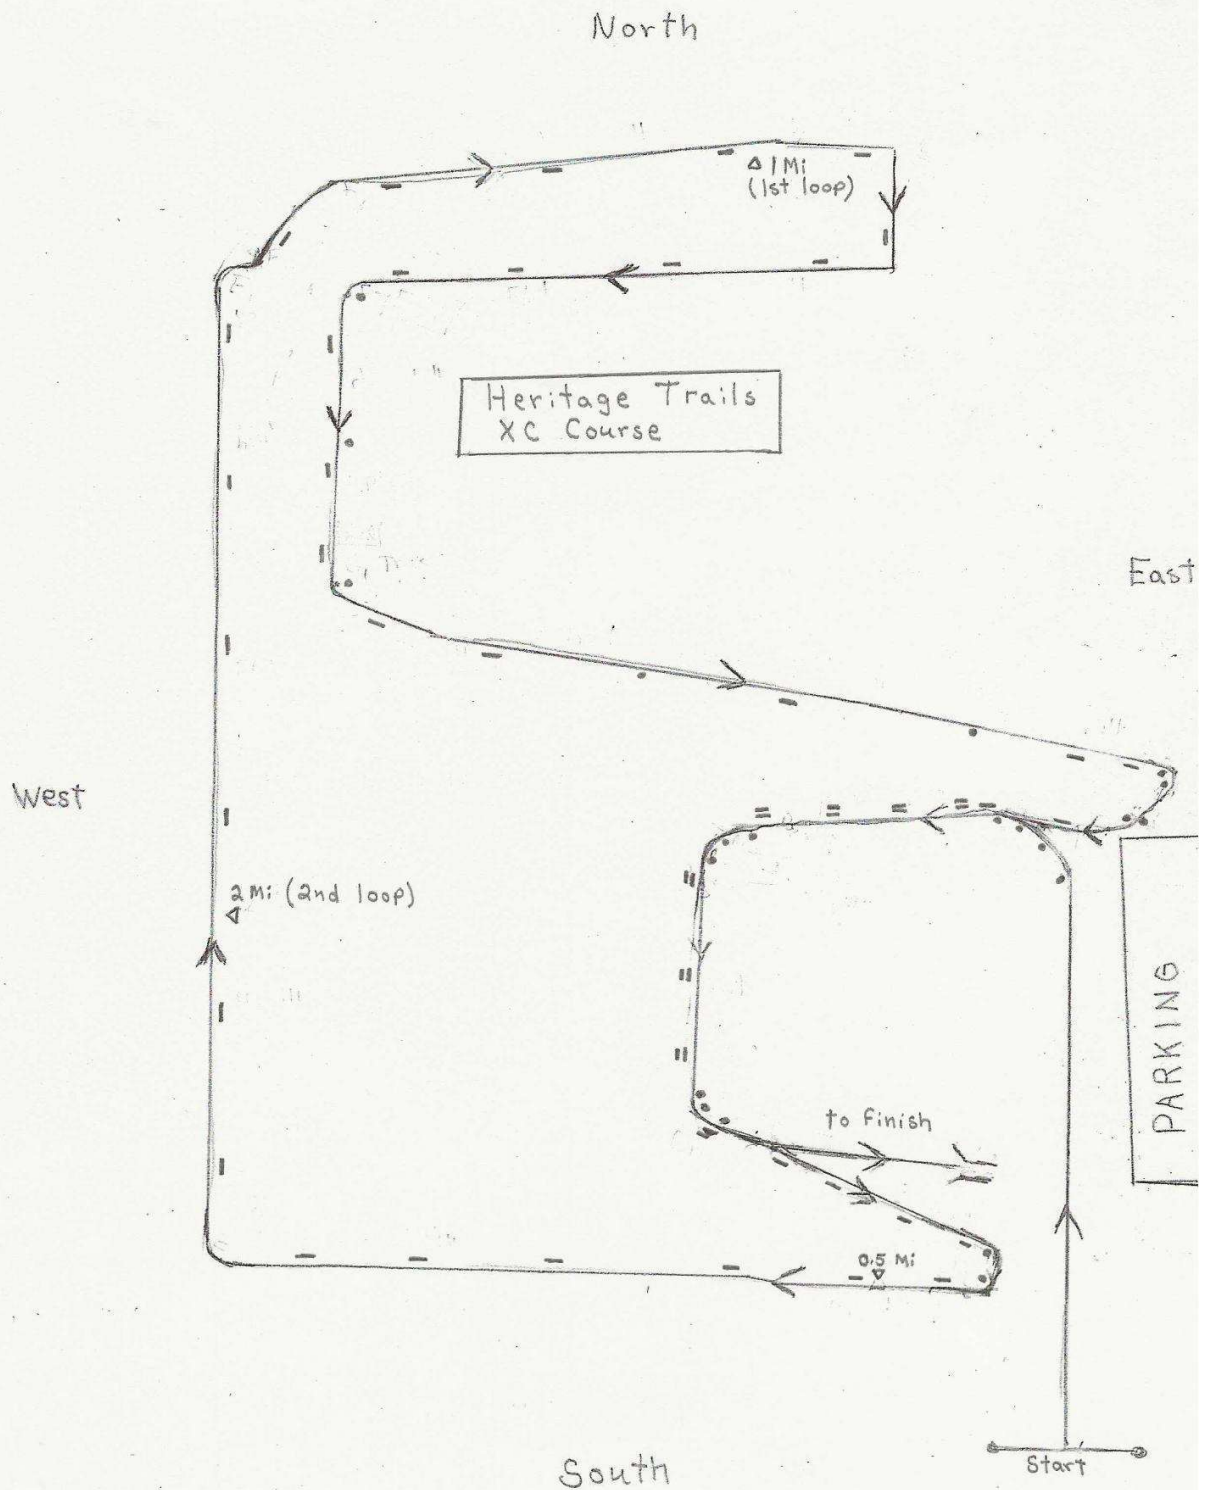 North
△ 1 Mi
(1st loop)
Heritage Trails
XC Course
East
West
2 Mi (2nd loop)
PARKING
to Finish
0.5 Mi
Start
South